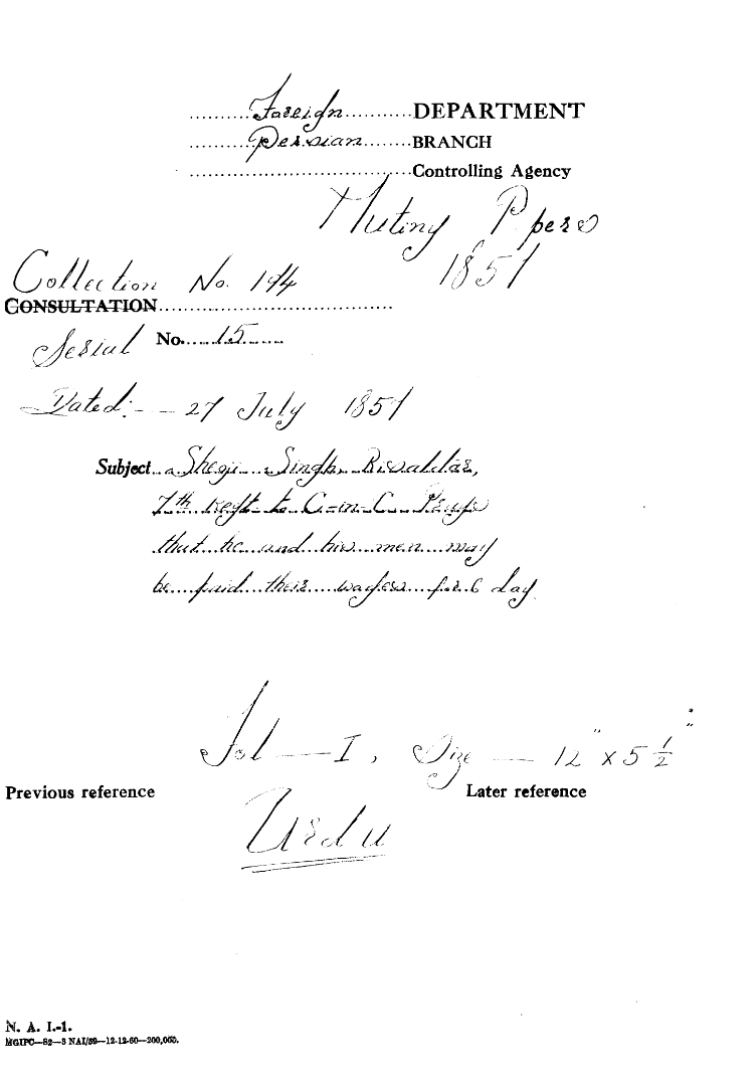 Foreign DEPARTMENT
Persian BRANCH
Controlling Agency
Mutiny Ppers
1857
Collection No. 194
CONSULTATION
Serial No. 15
Dated:- - 27 July 1857
Subject Singh
7th to C-in-C
that he and his men may
be paid their wages for 6 day
Fol — I, Size — 12" x 5 1/2"
Previous reference Later reference
Urdu
N. A. I.-1.
MGIPC—S2—3 NAI/59—12-12-60—200,000.